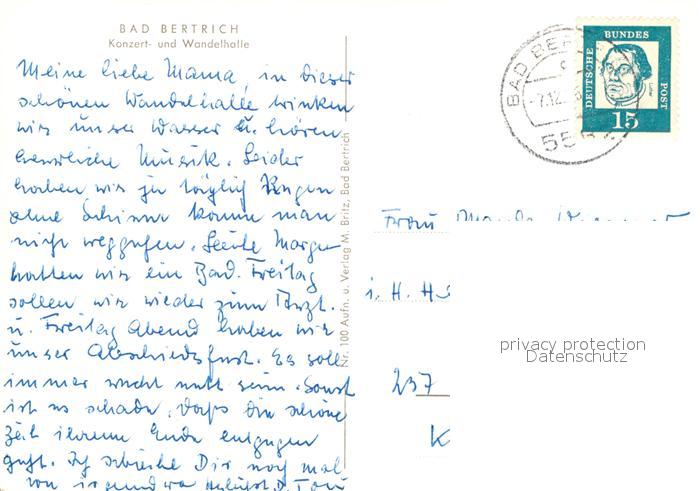 BAD BERTRICH
Konzert- und Wandelhalle
Meine liebe Mama, in dieser
schönen Wandelhalle trinken
wir unser Wasser u. hören
herrliche Musik. Leider
haben wir ja täglich Regen
ohne Schirm konnte man
nicht weggehen. Heute Morgen
hatten wir ein Bad. Freitag
sollen wir wieder zum Arzt.
u. Freitag Abend haben wir
unser Abschiedsfest. Es soll
immer recht nett sein. Sonst
ist es schade, dass die schöne
Zeit ihrem Ende entgegen
geht. Ich schreibe Dir noch mal
von irgendwo
Nr. 100 Aufn. u. Verlag M. Britz, Bad Bertrich
BAD BER
7.12.
555
DEUTSCHE BUNDES POST
Luther
15
Frau
i. H. H
237
K
privacy protection
Datenschutz